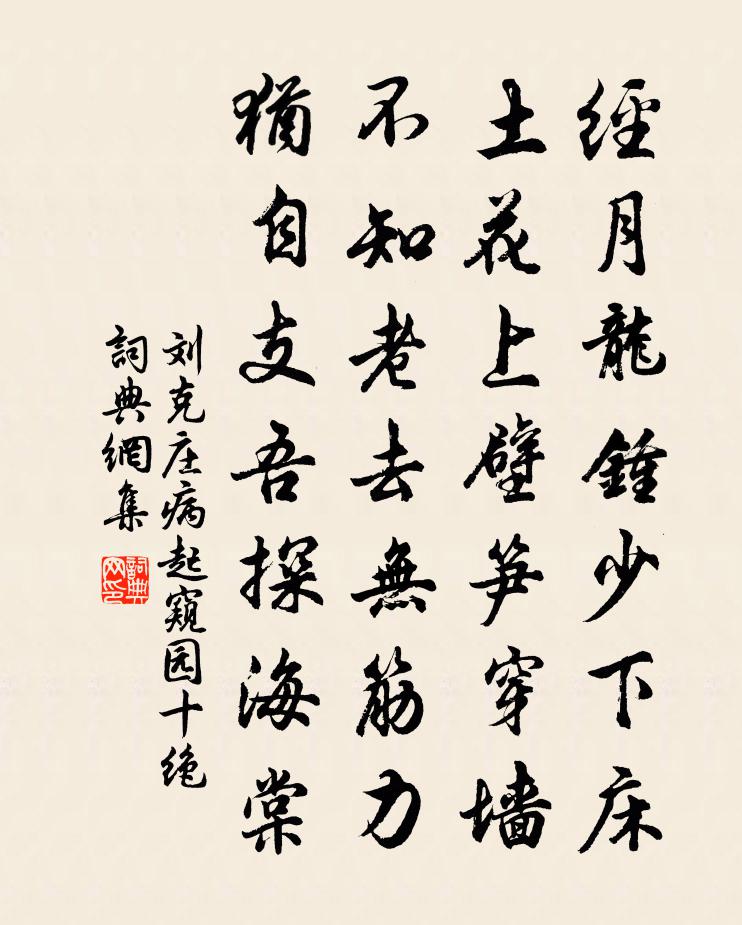 經月龍鍾少下床
土花上壁笋穿墙
不知老去無筋力
猶自支吾探海棠
刘克庄病起窺园十绝
詞典網集
詞典网印